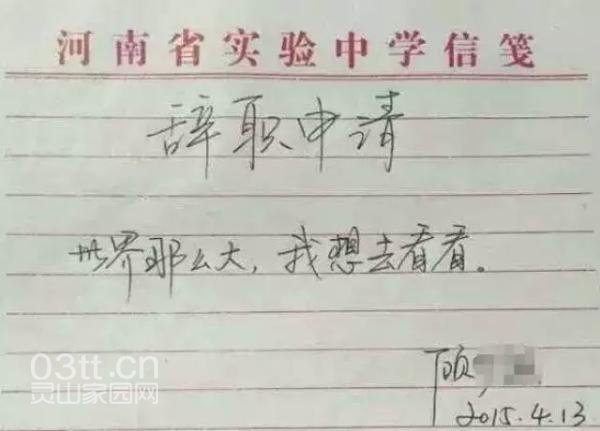 河南省实验中学信笺
辞职申请
世界那么大，我想去看看。
顾
2015.4.13
03tt.cn
灵山家园网